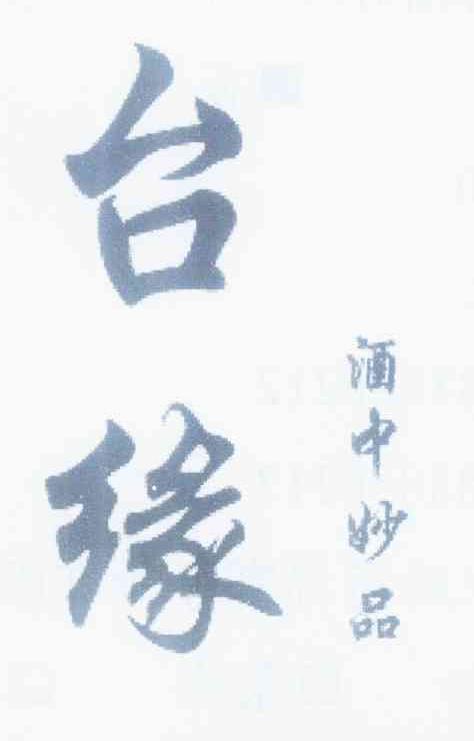 台缘
酒中妙品